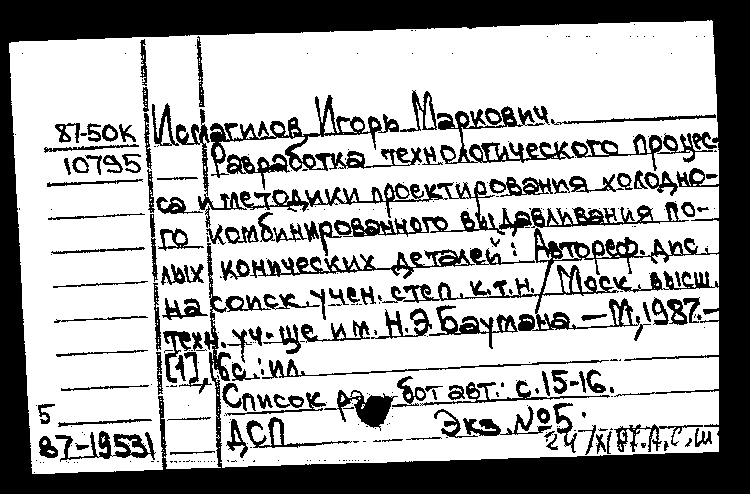 87-50К Исмагилов Игорь Маркович.
10795 Разработка технологического процес-
са и методики проектирования холодно-
го комбинированного выдавливания по-
лых конических деталей: Автореф. дис.
на соиск. учен. степ. к.т.н. / Моск. высш.
техн. уч-ще им. Н.Э.Баумана. — М., 1987.—
[1], 16с.: ил.
Список работ авт.: с.15-16.
5 ДСП Экз. №5.
87-19531